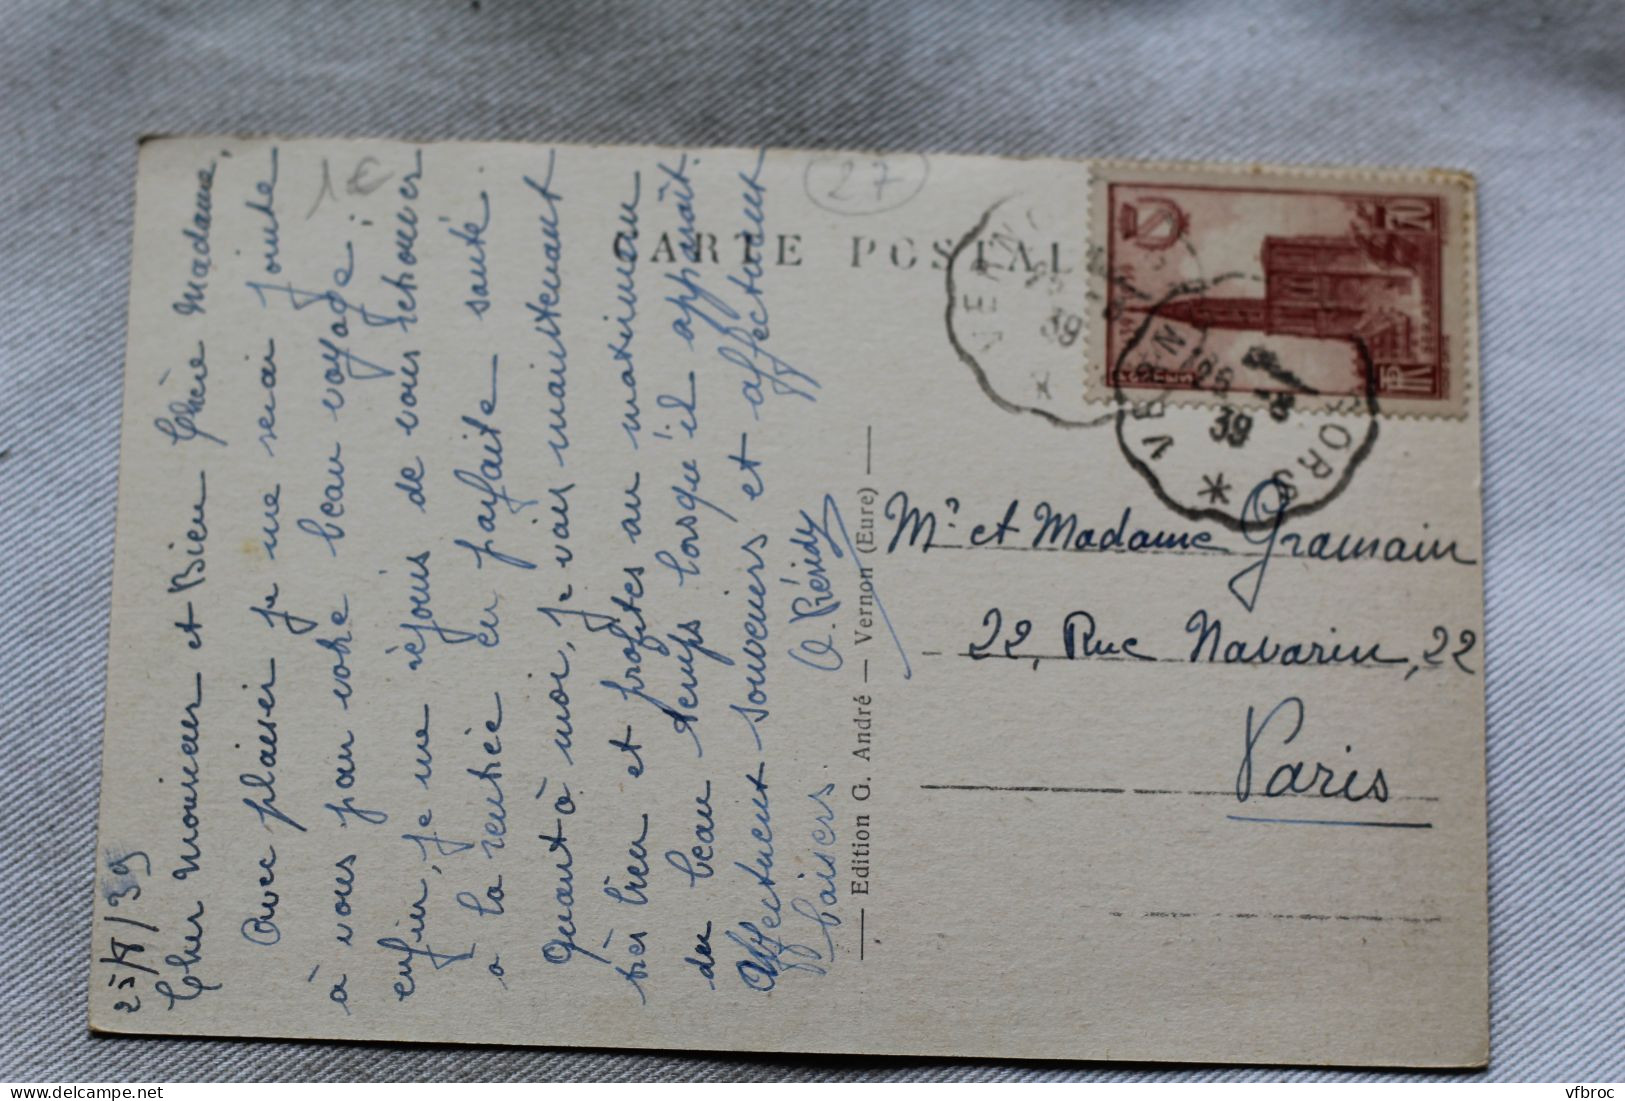 25/8/39
Cher Monsieur et Bien Chère Madame,
Avec plaisir je me serai jointe
à vous pour votre beau voyage ;
enfin, je me réjouis de vous retrouver
à la rentrée en parfaite santé.
Quant à moi, je vais maintenant
très bien et profites au maximum
du beau temps lorsqu'il apparaît.
Affectueux souvenirs et affectueux
baisers.
1€
27
CARTE POSTALE
VERNON
39
VERNON GISORS
25 -8
39
70
Edition G. André — Vernon (Eure)
Mr et Madame Gramain
22, Rue Navarin, 22
Paris
https://www.delcampe.net
vfbroc